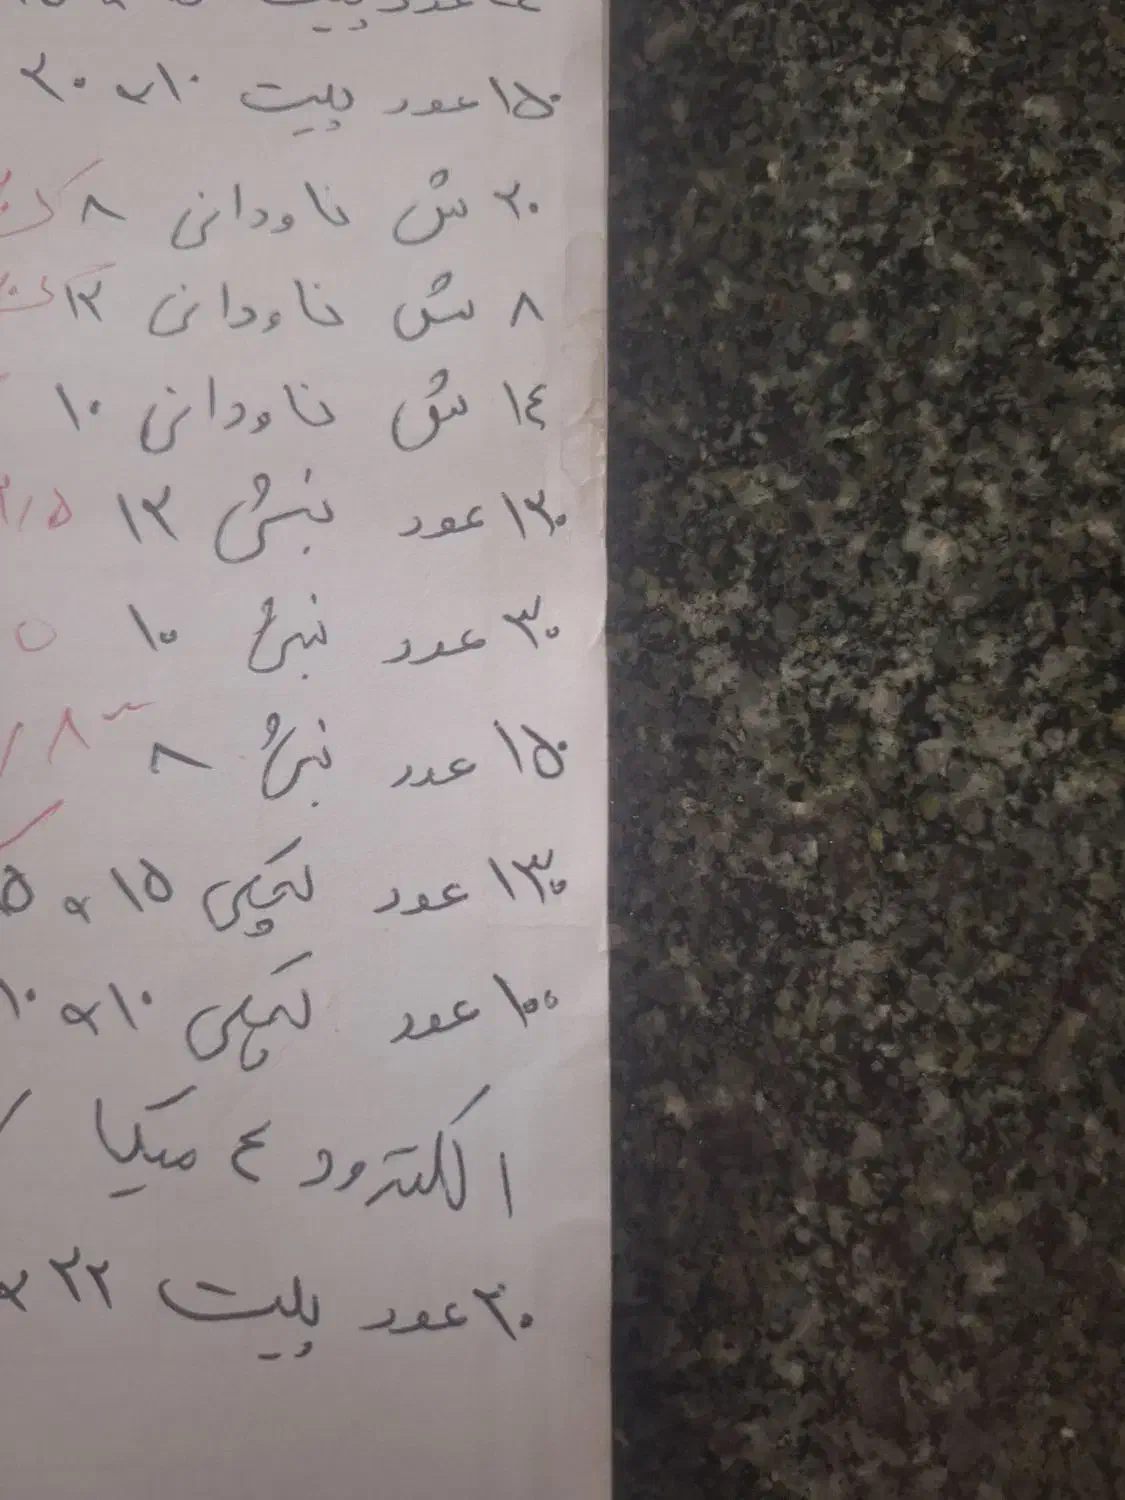 ۱۵۰ عدد پلیت ۱۰ × ۲۰
۲۰ ش ناودانی ۸
۸ ش ناودانی ۱۲
۱٤ ش ناودانی ۱۰
۱۳۰ عدد نبش ۱۲
۳۰ عدد نبش ۱۰
۱۵۰ عدد نبش ۸
۱۳۰ عدد لچکی ۱۵ × ۱۵
۱۰۰ عدد لچکی ۱۰ × ۱۰
الکترود ٤ میکا
۳۰ عدد پلیت ۲۲ ×